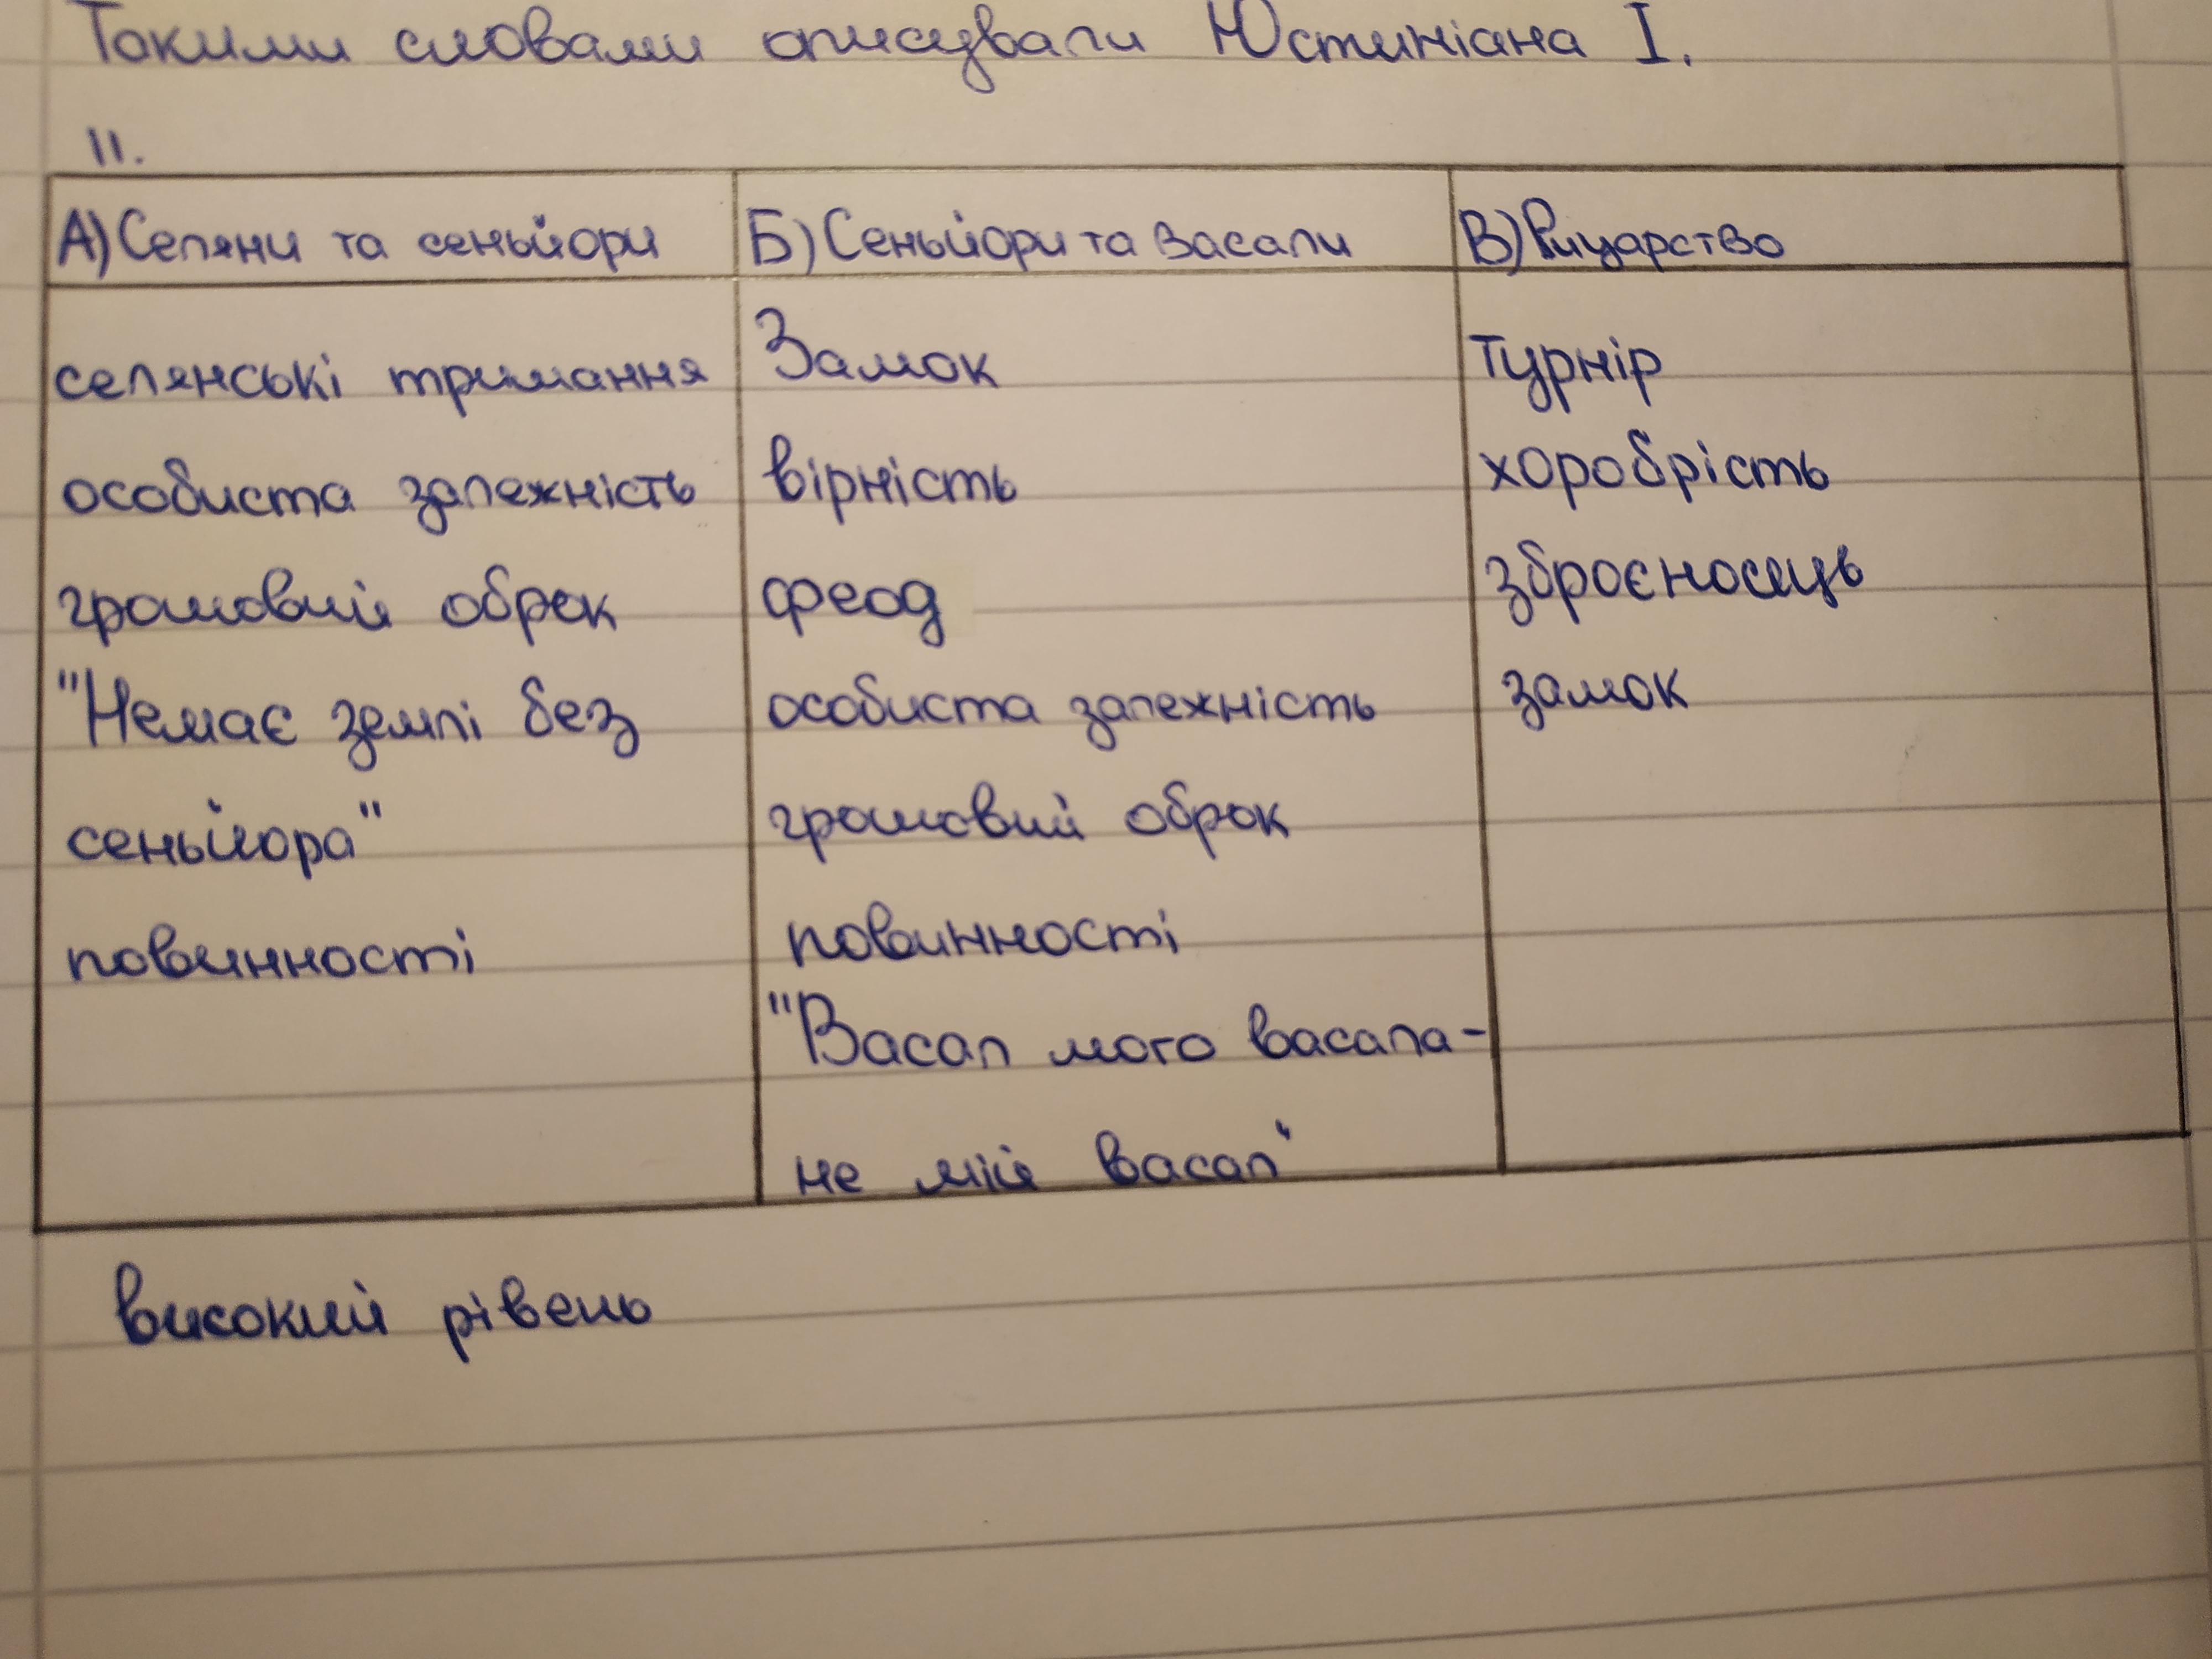 Такими словами описували Юстиніана І.
11.
А) Селяни та сеньйори
селянські тримання
особиста залежність
грошовий оброк
"Немає землі без
сеньйора"
повинності
Б) Сеньйори та васали
Замок
вірність
феод
особиста залежність
грошовий оброк
повинності
"Васал мого васала-
не мій васал"
В) Рицарство
турнір
хоробрість
зброєносець
замок
високий рівень